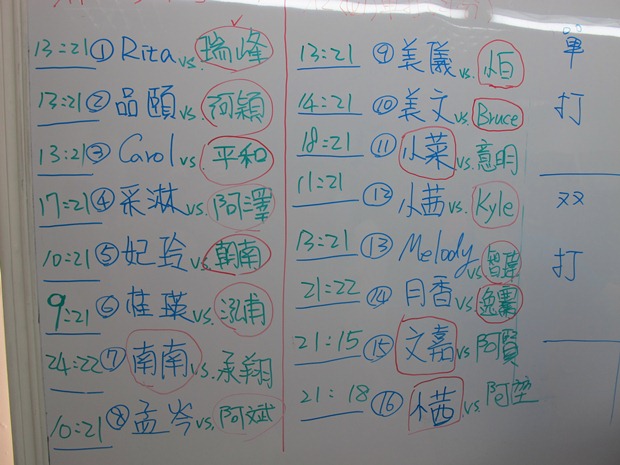 13:21 ① Rita vs. 瑞峰
13:21 ② 品頤 vs. 阿穎
13:21 ③ Carol vs. 平和
17:21 ④ 采淋 vs. 阿澤
10:21 ⑤ 妃玲 vs. 朝南
9:21 ⑥ 桂瑛 vs. 泓甫
24:22 ⑦ 南南 vs. 承翔
10:21 ⑧ 孟岑 vs. 阿斌
13:21 ⑨ 美儀 vs. 小白
14:21 ⑩ 美文 vs. Bruce
18:21 ⑪ 小菜 vs. 意明
11:21 ⑫ 小茜 vs. Kyle
13:21 ⑬ Melody vs 智瑋
21:22 ⑭ 月香 vs.
21:15 ⑮ 文嘉 vs 阿賢
21:18 ⑯ vs. 阿堂
單
打
双
打